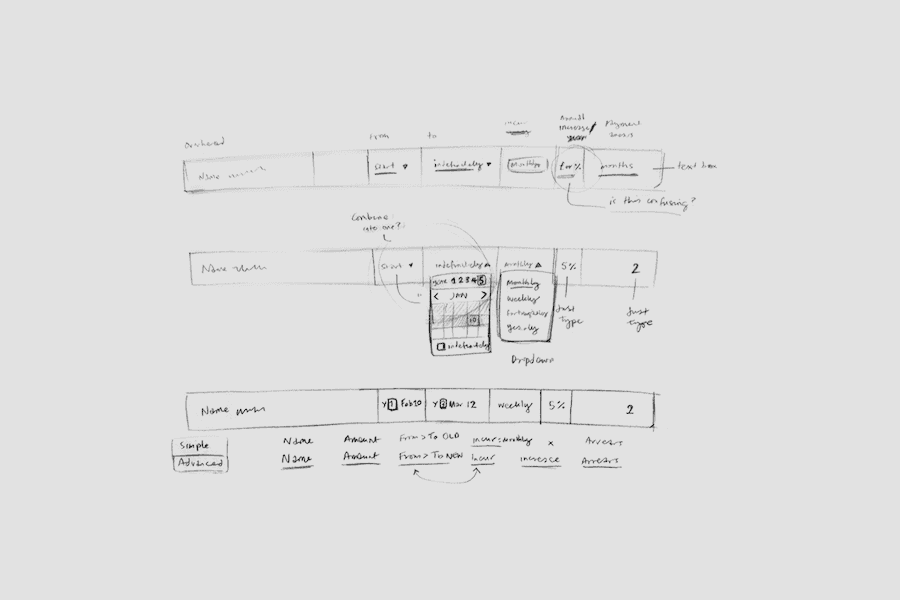 Overhead
from
to
increase/
Payment
Name
start
indefinitely
monthly
for %
months
text box
is this confusing?
Combine
into one?
Name
start
indefinitely
monthly
5%
2
year 1 2 3 4 5
< JAN >
10
indefinitely
Monthly
weekly
fortnightly
yearly
Just
type
Just
type
Dropdown
Name
Y 1 Feb 20
Y 2 Mar 12
weekly
5%
2
Simple
Name
Amount
From > To OLD
incurs monthly
x
Arrears
Advanced
Name
Amount
From > To NEW
Incur
increase
Arrears